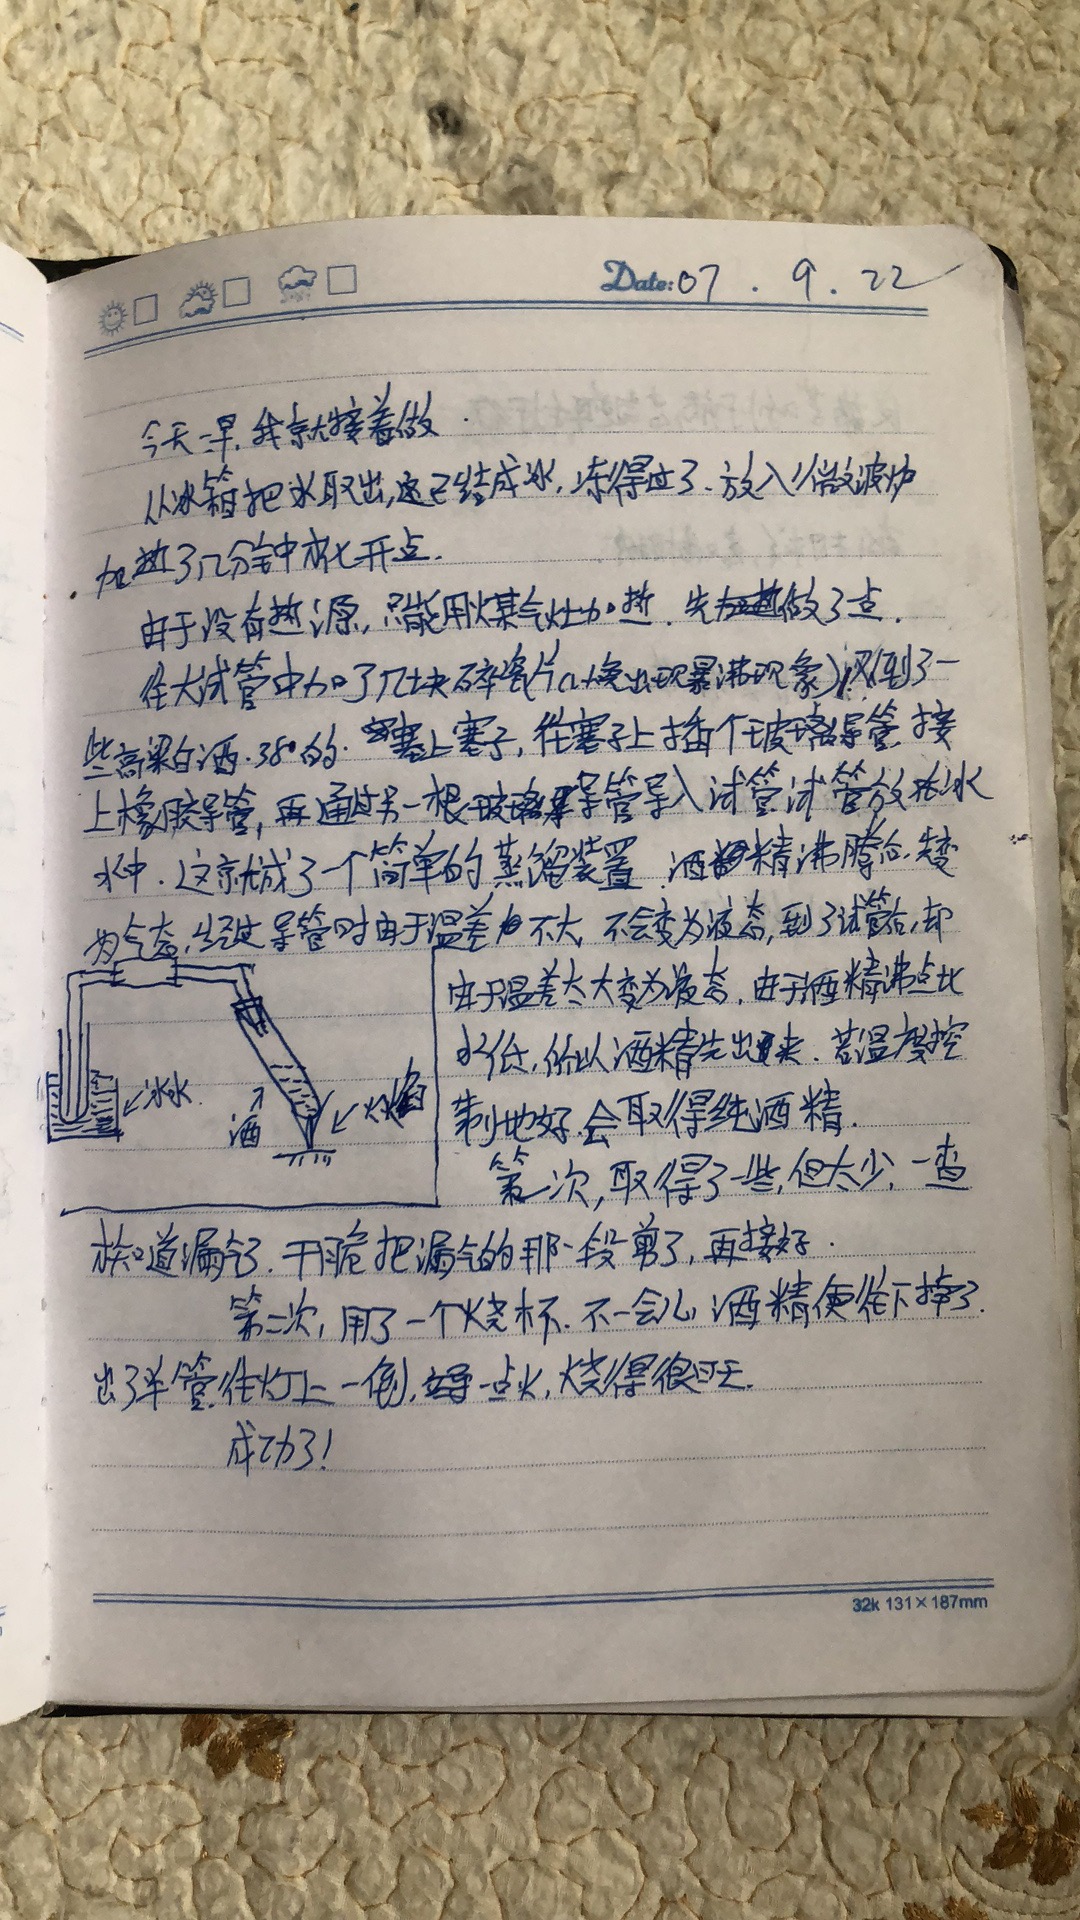 Date: 07 . 9 . 22
今天一早,我就接着做.
从冰箱把水取出,这已结成冰,冻得过了.放入微波炉
加热了几分钟才化开点.
由于没有热源,只能用煤气灶加热.先做了点.
往大试管中加了几块碎瓷片(以免出现暴沸现象),又倒了一
些高粱白酒.38°的.塞上塞子,在塞子上插个玻璃导管.接
上橡胶导管,再通过另一根玻璃导管导入试管.试管放在冰
水中.这就成了一个简单的蒸馏装置.酒精沸腾后,变
为气态,经过导管时由于温差不大,不会变为液态,到了试管后,却
由于温差太大变为液态,由于酒精沸点比
水低,所以酒精先出来.若温度控
制地好,会取得纯酒精.
冰水
酒
火焰
第一次,取得了一些,但太少,一查
才知道漏气了.干脆把漏气的那一段剪了,再接好.
第二次,用了一个烧杯.不一会儿,酒精便往下掉了.
出了半管.往灯上一倒,一点火,烧得很旺.
成功了!
32k 131×187mm